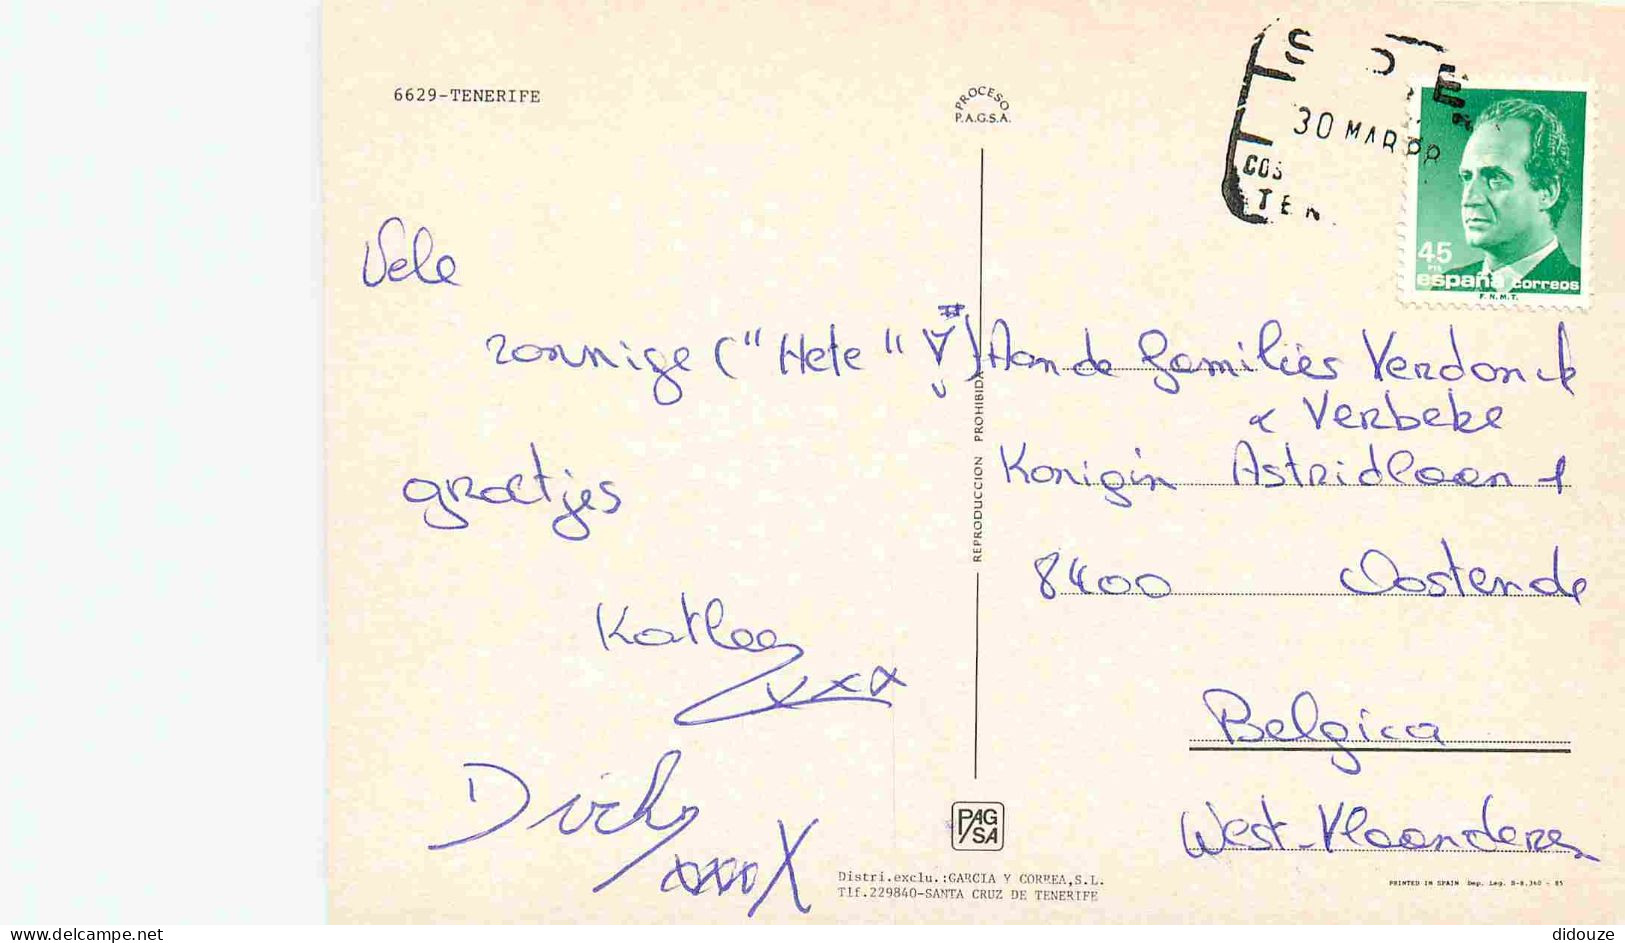 6629-TENERIFE
PROCESO
P.A.G.S.A.
30 MAR
45
PTS
españa correos
F.N.M.T.
Vele
zonnige ("Hete"
groetjes
Katleen
xxx
Dirk
xxxxX
REPRODUCCION PROHIBIDA
Aan de families Verdonck
& Verbeke
Konigin Astridlaan 1
8400 Oostende
Belgica
West-Vlaanderen
PAG
SA
Distri.exclu.:GARCIA Y CORREA,S.L.
Tlf.229840-SANTA CRUZ DE TENERIFE
PRINTED IN SPAIN Dep. Leg. B-8.340 - 85
delcampe.net
didouze